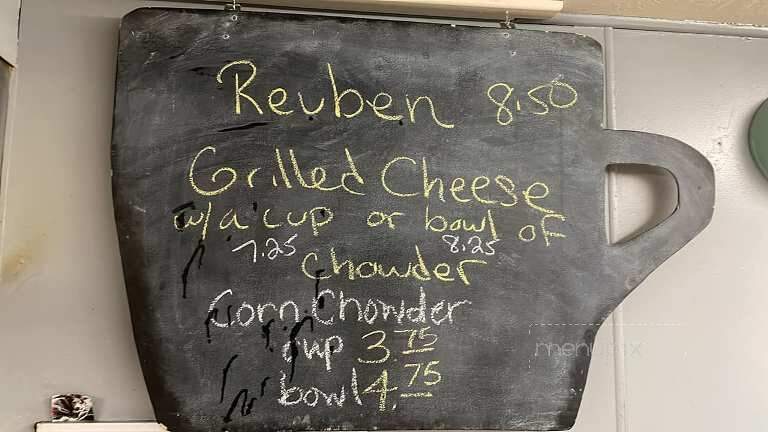 Reuben 8.50
Grilled Cheese
w/a cup or bowl of
7.25 8.25
Chowder
Corn Chowder
cup 3.75
bowl 4.75